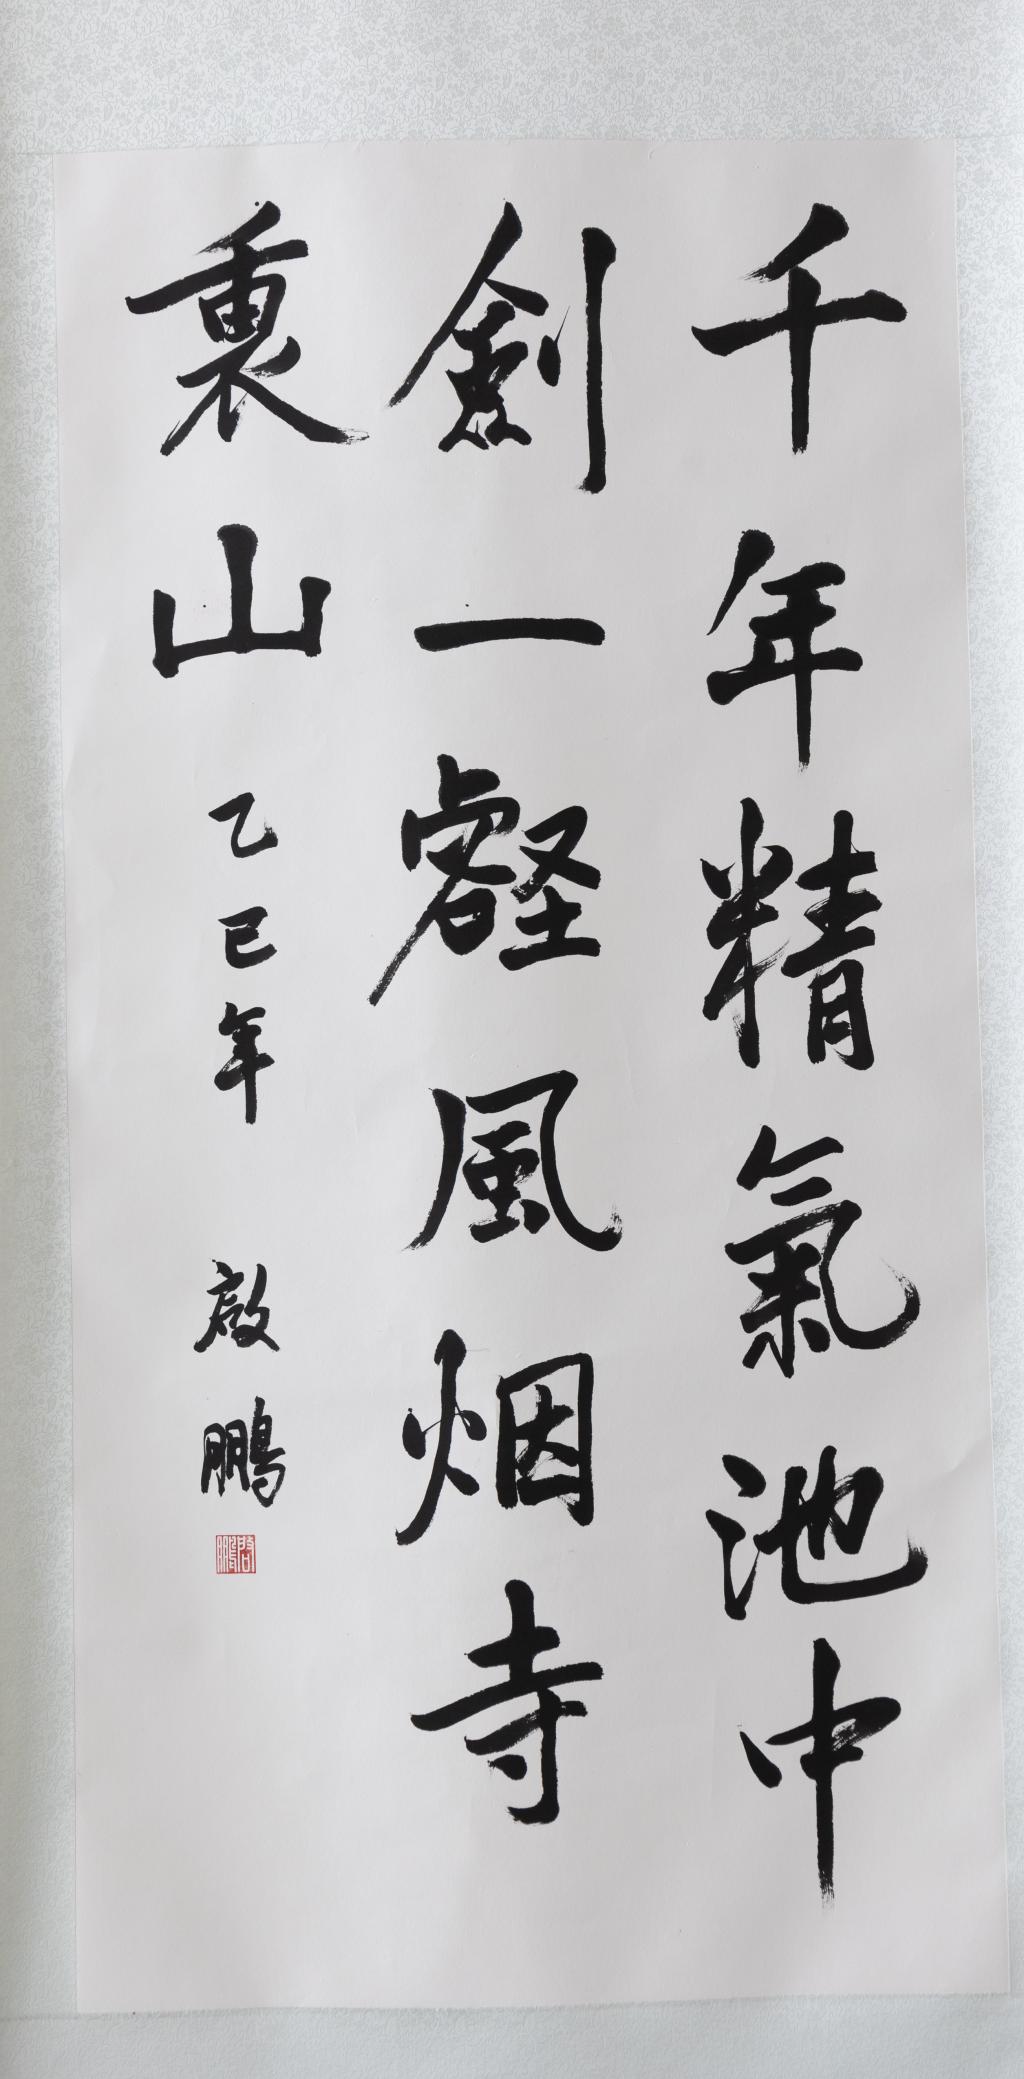 千年精氣池中
劍一壑風烟寺
裏山
乙巳年 啟鵬
啟鵬